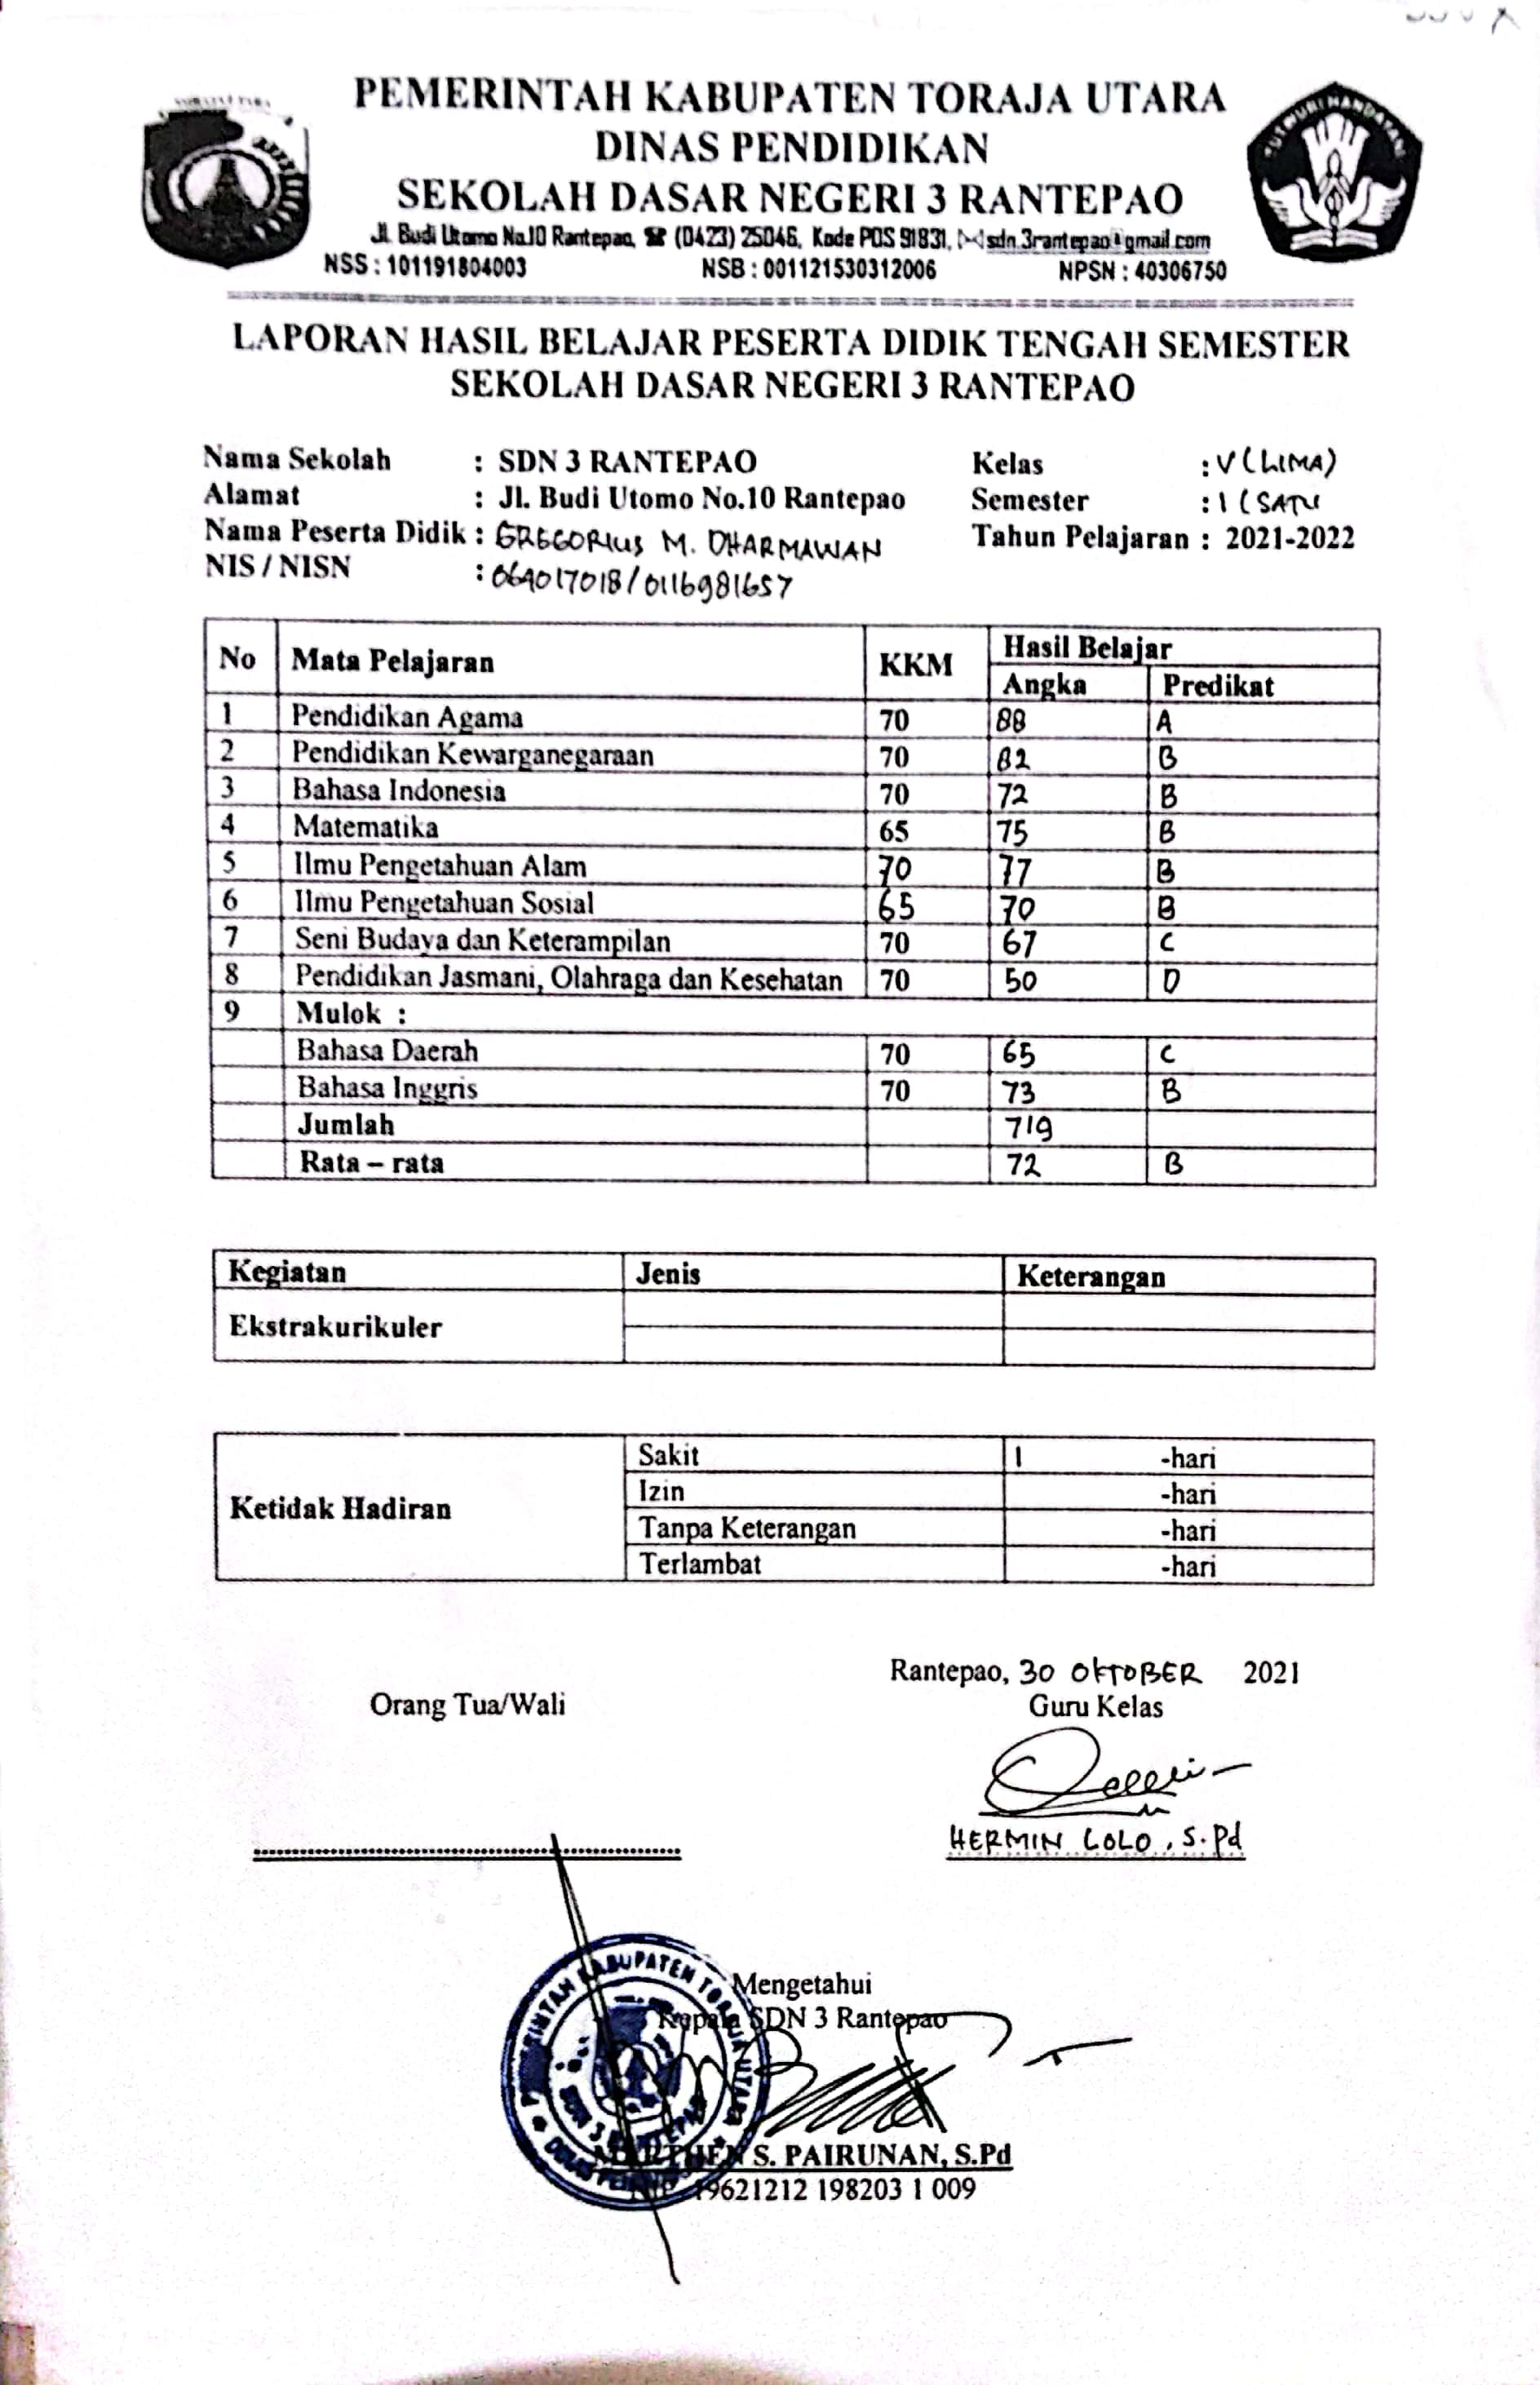 PEMERINTAH KABUPATEN TORAJA UTARA
DINAS PENDIDIKAN
SEKOLAH DASAR NEGERI 3 RANTEPAO
Jl. Budi Utomo No.10 Rantepao, ☎ (0423) 25046, Kode POS 91831, sdn.3rantepao@gmail.com
NSS : 101191804003 NSB : 001121530312006 NPSN : 40306750
TUT WURI HANDAYANI
LAPORAN HASIL BELAJAR PESERTA DIDIK TENGAH SEMESTER
SEKOLAH DASAR NEGERI 3 RANTEPAO
Nama Sekolah : SDN 3 RANTEPAO Kelas : V (LIMA)
Alamat : Jl. Budi Utomo No.10 Rantepao Semester : I (SATU
Nama Peserta Didik : GREGORIUS M. DHARMAWAN Tahun Pelajaran : 2021-2022
NIS / NISN : 064017018/0116981657
No Mata Pelajaran KKM Hasil Belajar
Angka Predikat
1 Pendidikan Agama 70 88 A
2 Pendidikan Kewarganegaraan 70 82 B
3 Bahasa Indonesia 70 72 B
4 Matematika 65 75 B
5 Ilmu Pengetahuan Alam 70 77 B
6 Ilmu Pengetahuan Sosial 65 70 B
7 Seni Budaya dan Keterampilan 70 67 C
8 Pendidikan Jasmani, Olahraga dan Kesehatan 70 50 D
9 Mulok :
Bahasa Daerah 70 65 C
Bahasa Inggris 70 73 B
Jumlah 719
Rata – rata 72 B
Kegiatan Jenis Keterangan
Ekstrakurikuler
Ketidak Hadiran
Sakit 1 -hari
Izin -hari
Tanpa Keterangan -hari
Terlambat -hari
Rantepao, 30 OKTOBER 2021
Orang Tua/Wali Guru Kelas
HERMIN LOLO, S.Pd
Mengetahui
Kepala SDN 3 Rantepao
MARTHEN S. PAIRUNAN, S.Pd
NIP. 19621212 198203 1 009
KABUPATEN TORAJA UTARA
SDN 3 RANTEPAO